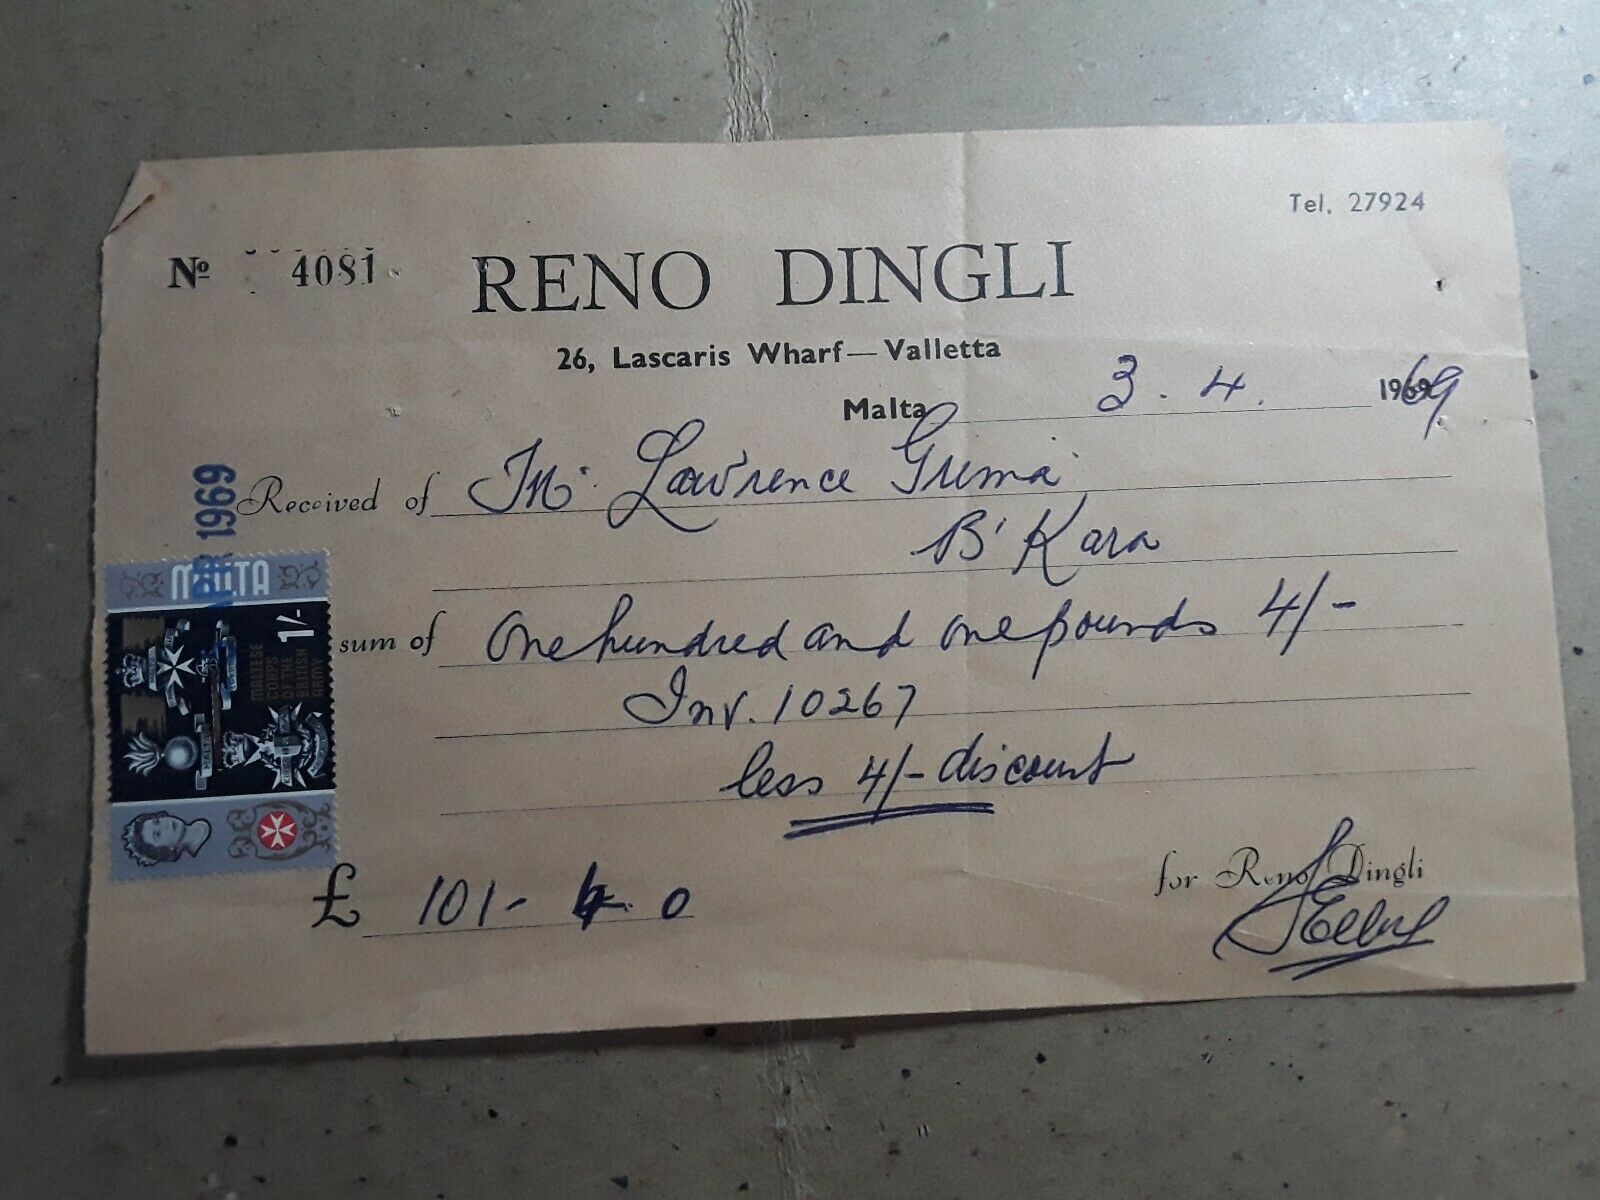 Tel. 27924
No 4081
RENO DINGLI
26, Lascaris Wharf—Valletta
Malta 3. 4. 1969
Received of Mr. Lawrence Grima
B'Kara
sum of One hundred and one pounds 4/-
Inv. 10267
less 4/- discount
£ 101- 4. 0
for Reno Dingli
APR 1969
MALTA
1/-
MALTESE
CORPS
OF THE
BRITISH
ARMY